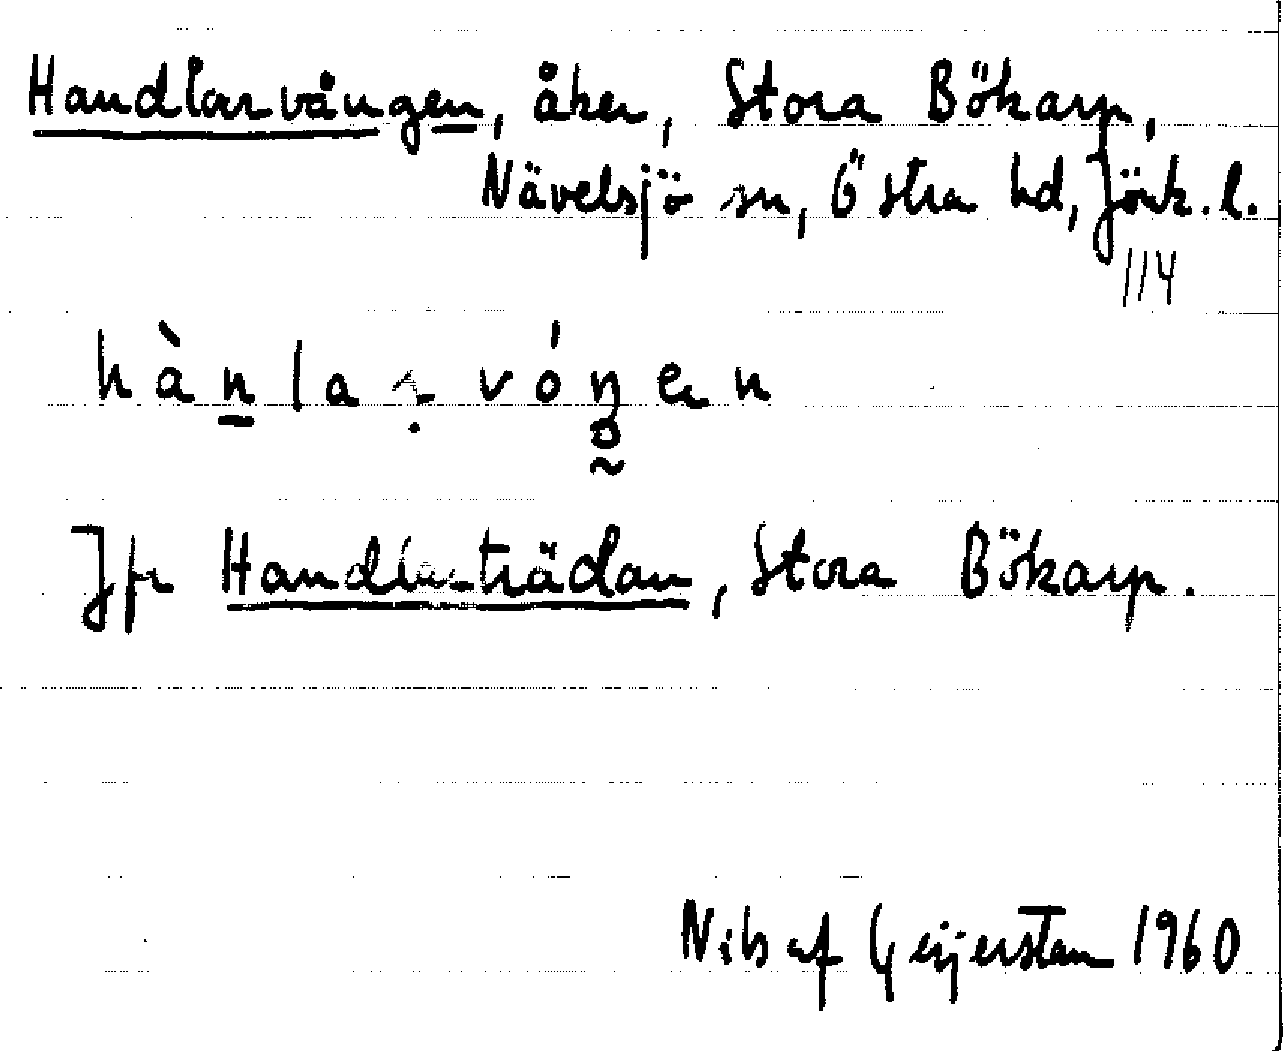 Handlarvången, åker, Stora Bökarp,
Nävelsjö sn, Östra hd, Jönk. l.
114
hànlarvóŋen
Jfr Handlarträdan, Stora Bökarp.
Nils af Geijerstam 1960